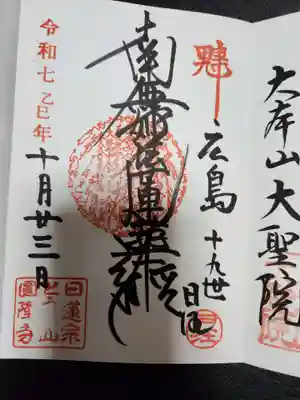 大本山大聖院
広島
十九世
南無妙法蓮華経
令和七乙巳年
十月廿三日
日蓮宗
圓隆寺